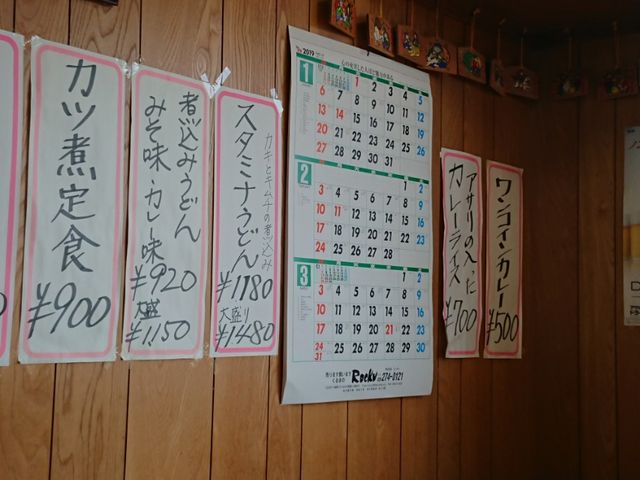 カツ煮定食
¥900
煮込みうどん
みそ味・カレー味
¥920
大盛
¥1,150
カキとキムチの煮込み
スタミナうどん
¥1180
大盛り
¥1480
2019
1
1 2 3 4 5
6 7 8 9 10 11 12
13 14 15 16 17 18 19
20 21 22 23 24 25 26
27 28 29 30 31
2
1 2
3 4 5 6 7 8 9
10 11 12 13 14 15 16
17 18 19 20 21 22 23
24 25 26 27 28
3
1 2
3 4 5 6 7 8 9
10 11 12 13 14 15 16
17 18 19 20 21 22 23
24 25 26 27 28 29 30
31
Rocky
274-0121
アサリの入った
カレーライス
¥700
ワンコインカレー
¥500